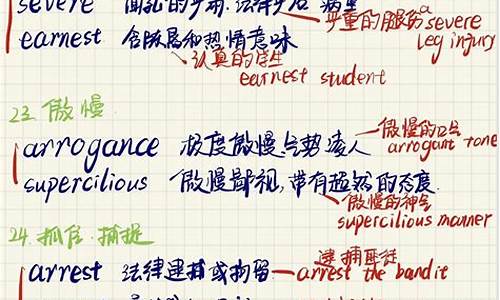 severe
严重的腿伤 a severe leg injury
earnest 含殷尽和热情意味
认真的学生
earnest student
23. 傲慢
arrogance 极度傲慢、气势凌人
傲慢的口气
arrogant tone
supercilious 傲慢鄙视,带有超然的态度
傲慢的神气
supercilious manner
24. 抓住、捕捉
arrest 法律逮捕或拘留
逮捕匪徒
arrest the bandit